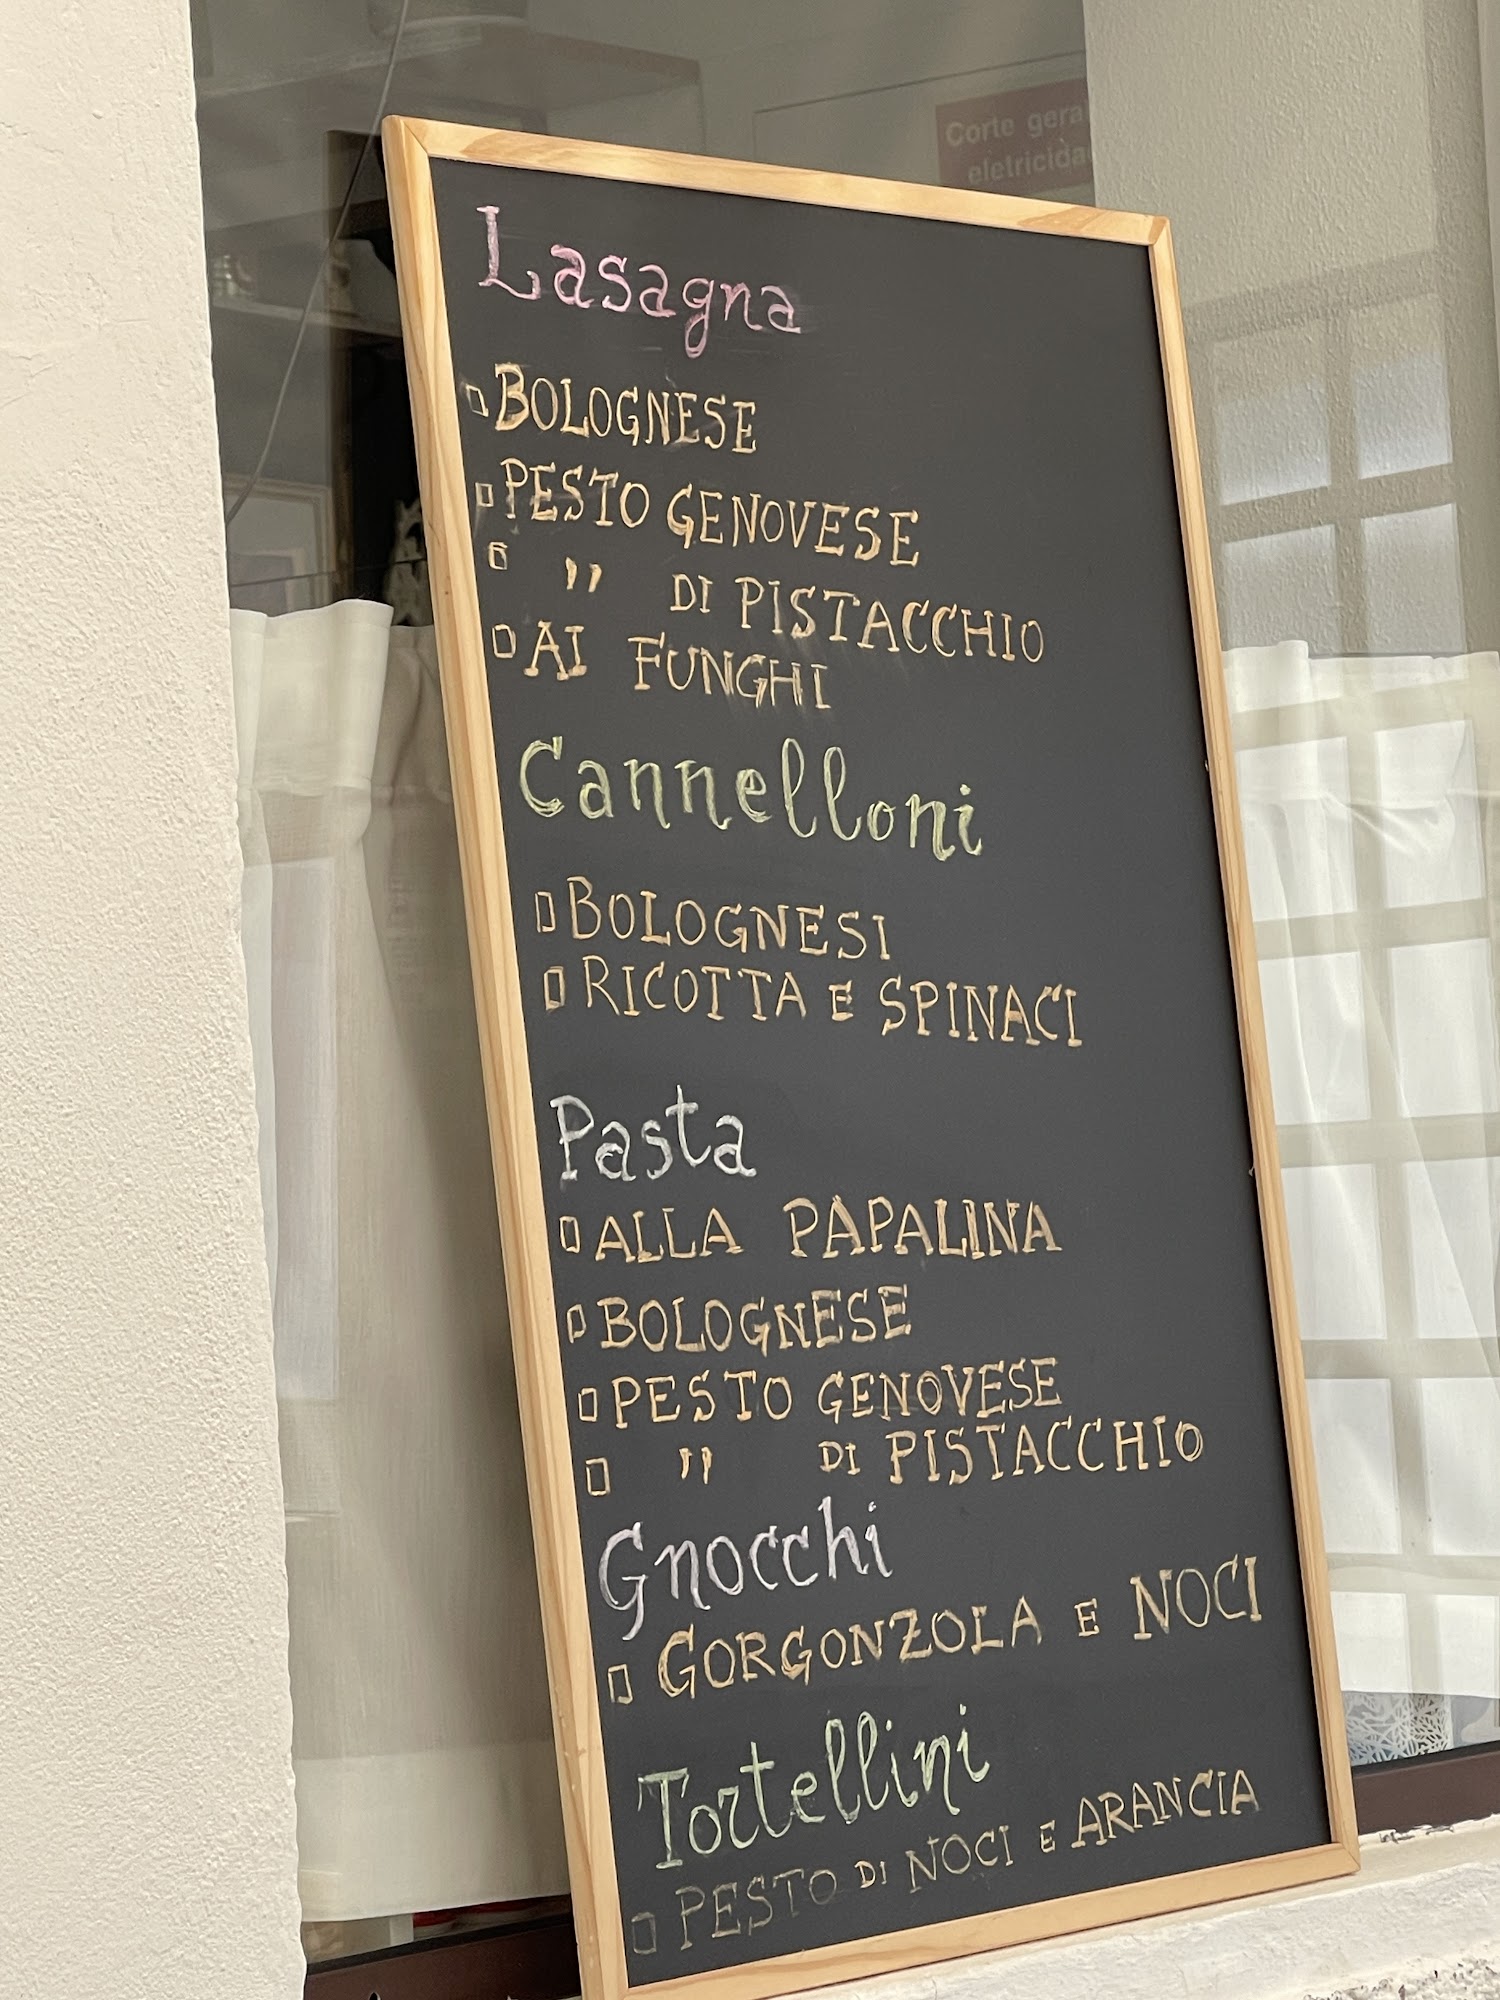 Corte geral
eletricida
Lasagna
BOLOGNESE
PESTO GENOVESE
" DI PISTACCHIO
AI FUNGHI
Cannelloni
BOLOGNESI
RICOTTA E SPINACI
Pasta
ALLA PAPALINA
BOLOGNESE
PESTO GENOVESE
" DI PISTACCHIO
Gnocchi
GORGONZOLA E NOCI
Tortellini
PESTO DI NOCI E ARANCIA